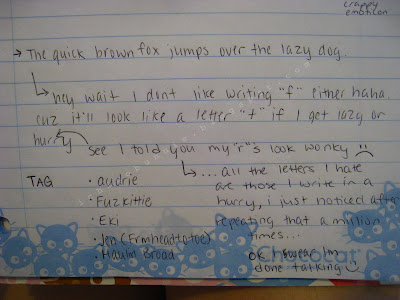 crappy
emoticon
→ The quick brown fox jumps over the lazy dog.
hey wait I dont like writing "f" either haha.
cuz it'll look like a letter "t" if I get lazy or
hurry
see I told you my "r"s look wonky :(
... all the letters I hate
are those I write in a
hurry, i just noticed after
repeating that a million
times...
OK I swear Im
done talking :)
TAG
• audrie
• Fuzkittie
• Eki
• Jen (Frmheadtotoe)
• Haulm Broad
Chococat